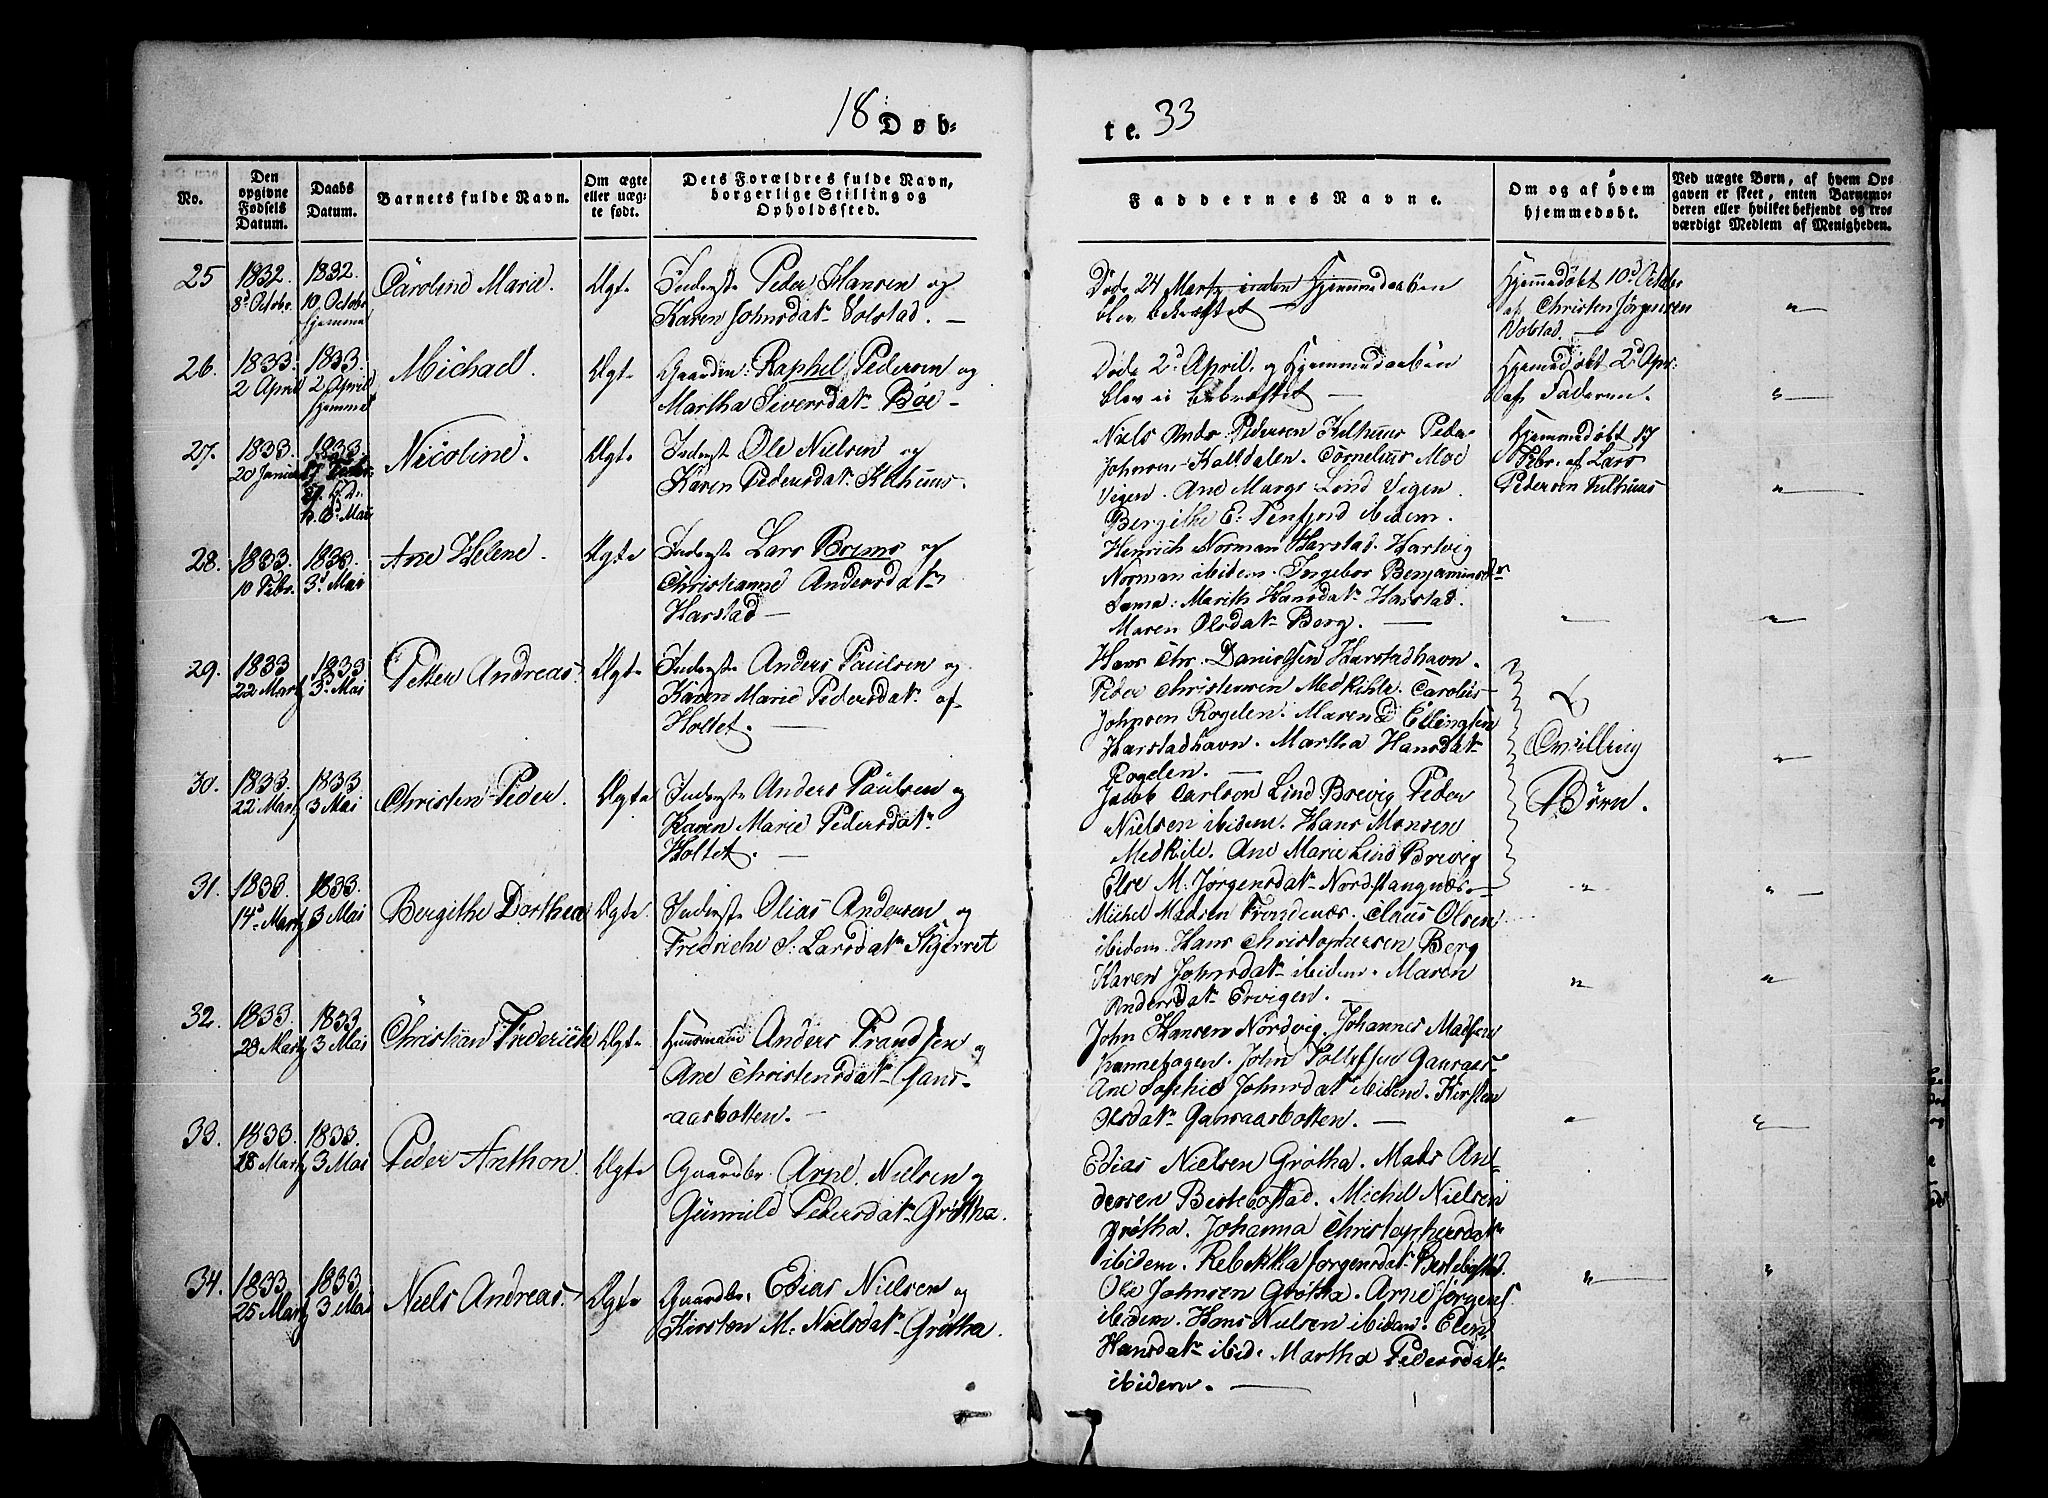 18 Døb-
te. 33
No.
Den
opgivne
Fødsels
Datum.
Daabs
Datum.
Barnets fulde Navn.
Om ægte
eller uæg-
te født.
Dets Forældres fulde Navn,
borgerlige Stilling og
Opholdssted.
Faddernes Navne.
Om og af hvem
hjemmedøbt.
Ved uægte Børn, af hvem Op-
gaven er skeet, enten Barnemo-
deren eller hvilket bekjendt og tro-
værdigt Medlem af Menigheden.
25
1832.
8d Octobr.
1832.
10 Octobr
hjemme
Caroline Marie.
Ægte
Inderste Peder Hansen og
Karen Johnsdatr Volstad. —
Døde 24 Martz inden Hjemmedaaben
blev bekræftet —
Hjemmedøbt 10d Octobr
af Christen Jørgensen
Volstad. —
26.
1833.
2 April
1833.
2 April
hjemme
Michael.
Ægte
Gaardm: Raphel Pedersen og
Martha Siversdatr Bøe —
Døde 2d April og Hjemmedaaben
blev ei bekræftet —
Hjemmedøbt 2d Apr:
af Faderen.
27.
1833.
20 Januar
1833.
Mai
Nicoline.
Ægte
Inderst Ole Nielsen og
Karen Pedersdatr Kilhuus.
Niels Andr Pedersen Kilhuus Peder
Johnsen Kaltdalen. Cornelius Moe
Vigen. Ane Margr Lind Vigen.
Bergithe E: Penfjord ibidem.
Hjemmedøbt 17
Febr. af Lars
Pedersen Kilhuus
28.
1833.
10 Febr.
1833.
3d Mai
Ane Helene.
Ægte
Inderste Lars Brims og
Christianne Andersdatr
Harstad —
Henrich Norman Harstad. Hartvig
Norman ibidem. Ingebor Benjaminsdr
Sama: Marith Hansdatr Harstad.
Maren Olsdatr Berg. —
29.
1833
22 Martz
1833
3d Mai
Petter Andreas.
Ægte
Inderste Anders Paulsen og
Karen Marie Pedersdatr af
Holtet. —
Hans Chr. Danielsen Harstadhavn.
Peder Christensen Medkihle. Carolus
Johnsen Rogelen. Maren Ellingsen
Harstadhavn. Martha Hansdatr
Rogelen. —
Tvilling
Børn.
30.
1833.
22 Martz
1833
3 Mai
Christen Peder.
Ægte
Inderste Anders Paulsen og
Karen Marie Pedersdatr
Holtet. —
Jacob Carlson Lind Brevig Peder
Nielsen ibidem. Hans Monsen
Medkile. Ane Marie Lind Brevig
Else M: Jørgensdatr Nordstangnæs. —
31.
1833.
14d Martz
1833.
3 Mai
Bergithe Dorthea
Ægte.
Inderste Olias Andersen og
Fredriche S: Larsdatr Skjerret
Michel Madsen Trondenæs. Claus Olsen
ibidem. Hans Christophersen Berg
Karen Johnsdatr ibidem. Maren
Andersdatr Ervigen. —
32.
1833.
28 Martz
1833
3 Mai
Christian Frederich
Ægte.
Huusmand Anders Frandsen og
Ane Christensdatr Gans-
-aasbotten. —
John Hansen Nordvig. Johannes Madsen
Kannehagen. John Tollefsen Gansaas
Ane Sophie Johnsdatr ibidem. Kirsten
Olsdatr Gansaasbotten. —
33.
1833.
28 Martz
1833.
3 Mai
Peder Anthon.
Ægte
Gaardbr Arne Nielsen og
Gunnild Pedersdatr Grøtha.
Edias Nielsen Grøtha. Mads An-
dersen Bestebostad. Michel Nielsen
Grøtha. Johanna Christophersdatr
ibidem. Rebekka Jørgensdatr Bestebostad.
34.
1833
25 Martz
1833
3 Mai
Niels Andreas.
Ægte
Gaardbr. Edias Nielsen og
Kirsten M: Nielsdatr Grøtha.
Ole Johnsen Grøtha. Arne Jørgens.
ibidem. Hans Nielsen ibidem. Elen
Hansdatr ibid. Martha Pedersdatr
ibidem. —